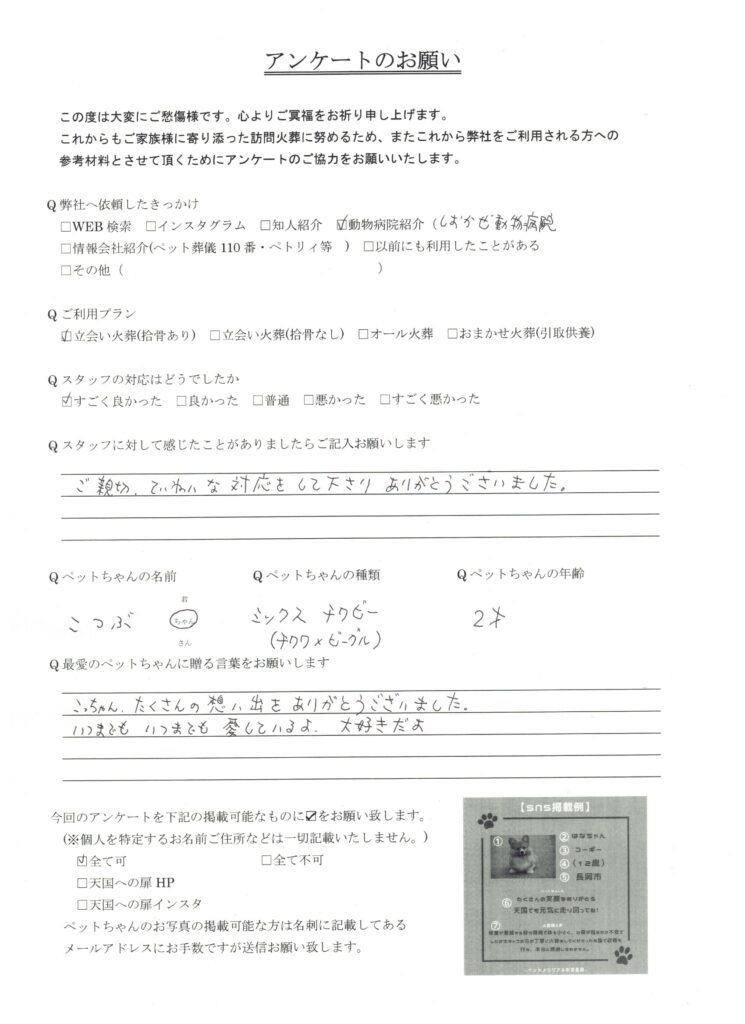 アンケートのお願い
この度は大変にご愁傷様です。心よりご冥福をお祈り申し上げます。
これからもご家族様に寄り添った訪問火葬に努めるため、またこれから弊社をご利用される方への
参考材料とさせて頂くためにアンケートのご協力をお願いいたします。
Q 弊社へ依頼したきっかけ
□WEB 検索 □インスタグラム □知人紹介 ☑動物病院紹介 (しおかぜ動物病院
□情報会社紹介(ペット葬儀 110 番・ペトリィ等 ) □以前にも利用したことがある
□その他 ( )
Q ご利用プラン
☑立会い火葬(拾骨あり) □立会い火葬(拾骨なし) □オール火葬 □おまかせ火葬(引取供養)
Q スタッフの対応はどうでしたか
☑すごく良かった □良かった □普通 □悪かった □すごく悪かった
Q スタッフに対して感じたことがありましたらご記入お願いします
ご親切、ていねいな対応をして下さり ありがとうございました。
Q ペットちゃんの名前 Q ペットちゃんの種類 Q ペットちゃんの年齢
君
こつぶ ちゃん ミックス チワビー 2才
さん (チワワ×ビーグル)
Q 最愛のペットちゃんに贈る言葉をお願いします
こっちゃん、たくさんの想い出をありがとうございました。
いつまでも いつまでも 愛しているよ。大好きだよ
今回のアンケートを下記の掲載可能なものに☑をお願い致します。
(※個人を特定するお名前ご住所などは一切記載いたしません。)
☑全て可 □全て不可
□天国への扉 HP
□天国への扉インスタ
ペットちゃんのお写真の掲載可能な方は名刺に記載してある
メールアドレスにお手数ですが送信お願い致します。
【sns掲載例】
① ② はなちゃん
③ コーギー
④ (12歳)
⑤ 長岡市
⑥ たくさんの笑顔をありがとう
天国でも元気に走り回ってね!
⑦